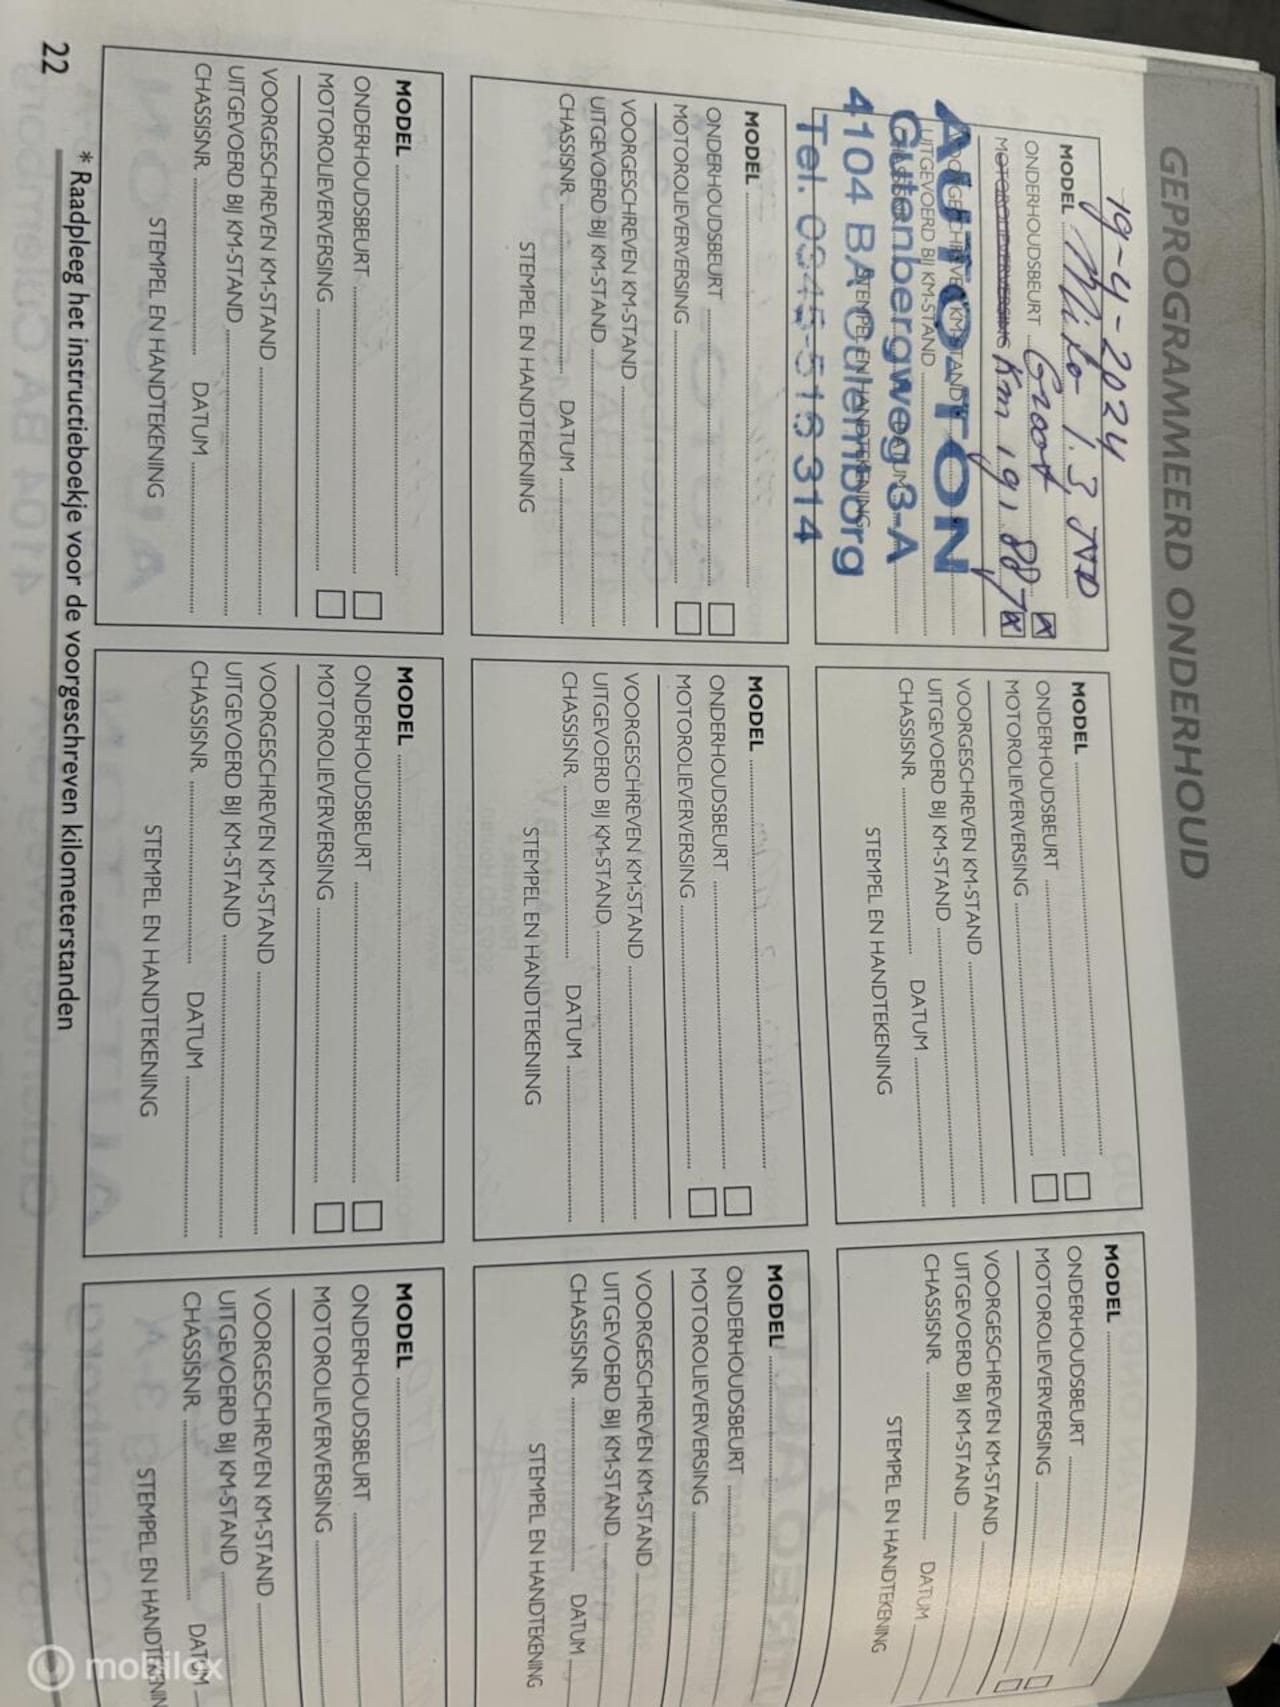 GEPROGRAMMEERD ONDERHOUD
19-4-2024
MODEL Mito 1.3 JTD
ONDERHOUDSBEURT Groot
MOTOROLIEVERVERSING Km 191.887
VOORGESCHREVEN KM-STAND
UITGEVOERD BIJ KM-STAND
CHASSISNR. DATUM
STEMPEL EN HANDTEKENING
AUTO-TON
Gutenbergweg 3-A
4104 BA Culemborg
Tel. 0345-516 314
MODEL
ONDERHOUDSBEURT
MOTOROLIEVERVERSING
VOORGESCHREVEN KM-STAND
UITGEVOERD BIJ KM-STAND
CHASSISNR. DATUM
STEMPEL EN HANDTEKENING
MODEL
ONDERHOUDSBEURT
MOTOROLIEVERVERSING
VOORGESCHREVEN KM-STAND
UITGEVOERD BIJ KM-STAND
CHASSISNR. DATUM
STEMPEL EN HANDTEKENING
MODEL
ONDERHOUDSBEURT
MOTOROLIEVERVERSING
VOORGESCHREVEN KM-STAND
UITGEVOERD BIJ KM-STAND
CHASSISNR. DATUM
STEMPEL EN HANDTEKENING
MODEL
ONDERHOUDSBEURT
MOTOROLIEVERVERSING
VOORGESCHREVEN KM-STAND
UITGEVOERD BIJ KM-STAND
CHASSISNR. DATUM
STEMPEL EN HANDTEKENING
MODEL
ONDERHOUDSBEURT
MOTOROLIEVERVERSING
VOORGESCHREVEN KM-STAND
UITGEVOERD BIJ KM-STAND
CHASSISNR. DATUM
STEMPEL EN HANDTEKENING
MODEL
ONDERHOUDSBEURT
MOTOROLIEVERVERSING
VOORGESCHREVEN KM-STAND
UITGEVOERD BIJ KM-STAND
CHASSISNR. DATUM
STEMPEL EN HANDTEKENING
MODEL
ONDERHOUDSBEURT
MOTOROLIEVERVERSING
VOORGESCHREVEN KM-STAND
UITGEVOERD BIJ KM-STAND
CHASSISNR. DATUM
STEMPEL EN HANDTEKENING
MODEL
ONDERHOUDSBEURT
MOTOROLIEVERVERSING
VOORGESCHREVEN KM-STAND
UITGEVOERD BIJ KM-STAND
CHASSISNR. DATUM
STEMPEL EN HANDTEKENIN
* Raadpleeg het instructieboekje voor de voorgeschreven kilometerstanden
22
mobilox